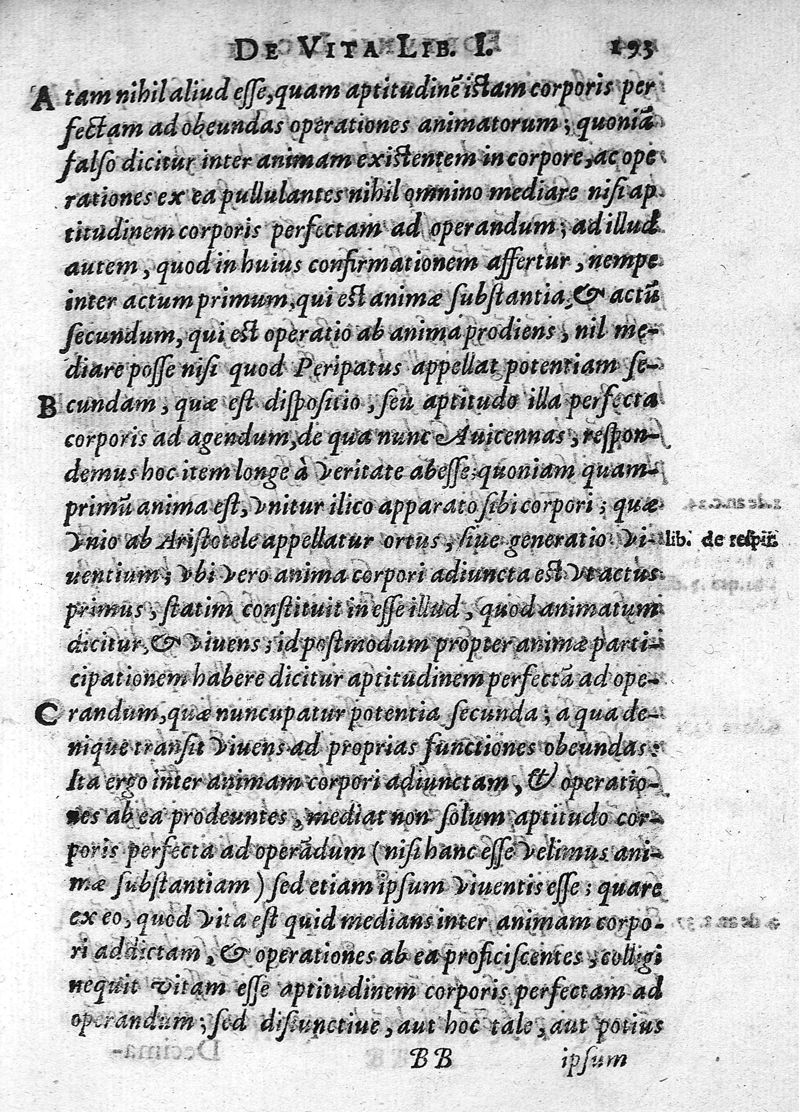 DE VITA LIB. I. 193
A tam nihil aliud esse, quam aptitudinē istam corporis per
fectam ad obeundas operationes animatorum; quoniā
falso dicitur inter animam existentem in corpore, ac ope
rationes ex ea pullulantes nihil omnino mediare nisi ap
titudinem corporis perfectam ad operandum; ad illud
autem, quod in huius confirmationem affertur, nempe
inter actum primum, qui est animæ substantia, & actū
secundum, qui est operatio ab anima prodiens, nil me-
diare posse nisi quod Peripatus appellat potentiam se-
B cundam, quæ est dispositio, seu aptitudo illa perfecta
corporis ad agendum, de qua nunc Auicennas, respon-
demus hoc item longe à veritate abesse: quoniam quam-
primū anima est, vnitur ilico apparato sibi corpori; quæ
vnio ab Aristotele appellatur ortus, siue generatio vi- lib. de respir.
uentium; vbi vero anima corpori adiuncta est vt actus
primus, statim constituit in esse illud, quod animatum
dicitur, & viuens; id postmodum propter animæ parti-
cipationem habere dicitur aptitudinem perfectā ad ope-
C randum, quæ nuncupatur potentia secunda; a qua de-
nique transit viuens ad proprias functiones obeundas:
Ita ergo inter animam corpori adiunctam, & operatio-
nes ab ea prodeuntes, mediat non solum aptitudo cor-
poris perfecta ad operādum (nisi hanc esse velimus ani-
mæ substantiam) sed etiam ipsum viuentis esse; quare
ex eo, quod vita est quid medians inter animam corpo-
ri addictam, & operationes ab ea proficiscentes, colligi
nequit vitam esse aptitudinem corporis perfectam ad
operandum; sed disiunctiue, aut hoc tale, aut potius
BB ipsum